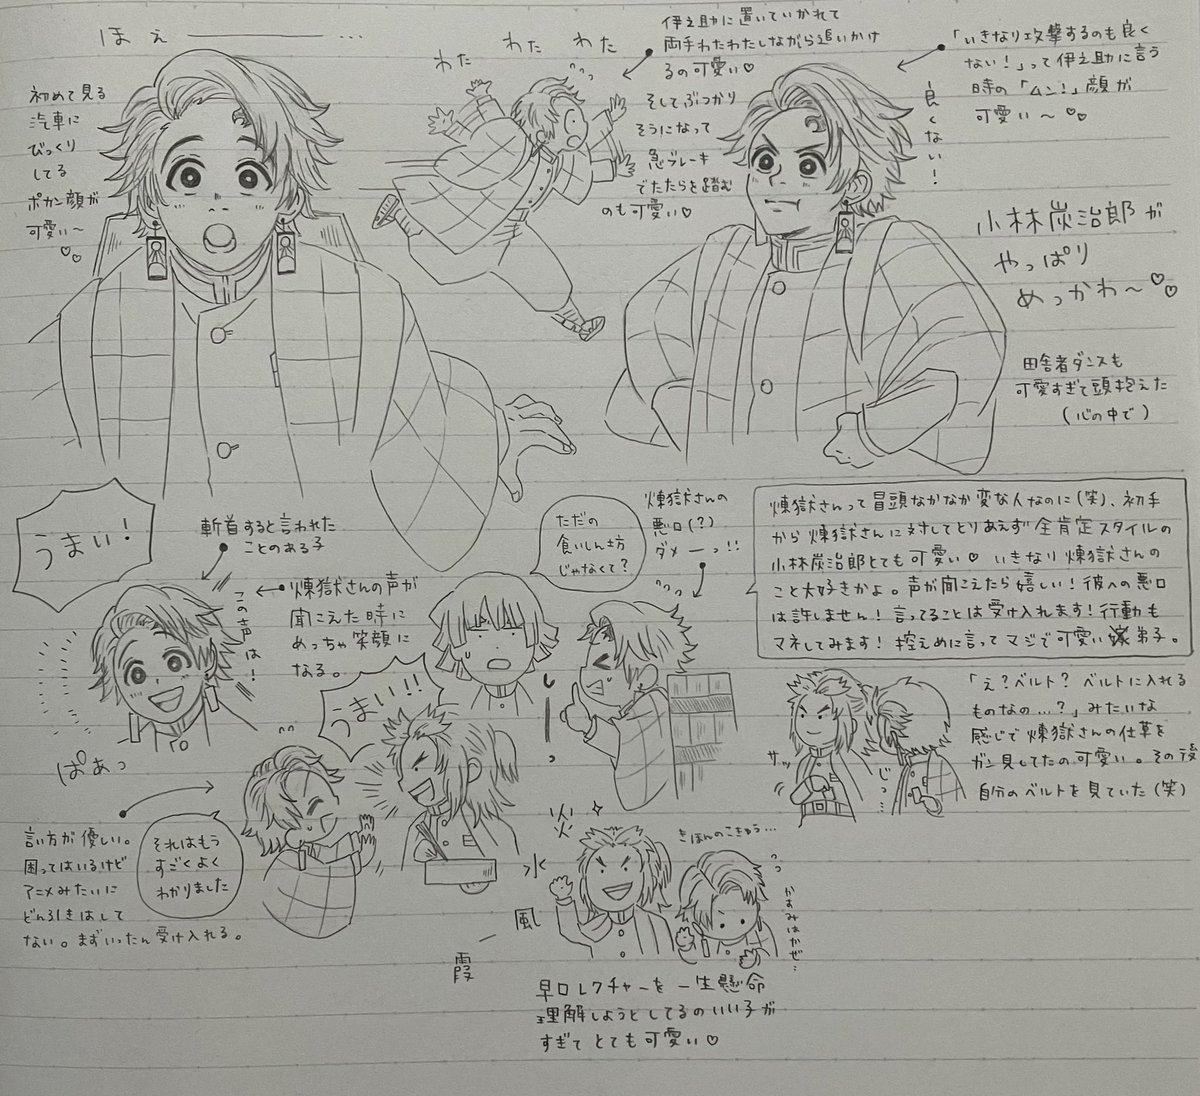 ほぇ———…
初めて見る
汽車に
びっくり
してる
ポカン顔が
可愛い〜
♡♡
わた
わた
わた
伊之助に置いていかれて
両手わたわたしながら追いかけ
るの可愛い♡
そしてぶつかり
そうになって
急ブレーキ
でたたらを踏む
のも可愛い♡
「いきなり攻撃するのも良く
ない!」って伊之助に言う
時の「ムン!」顔が
可愛い〜♡♡
良くない!
小林炭治郎が
やっぱり
めっかわ〜♡♡
田舎者ダンスも
可愛すぎて頭抱えた
(心の中で)
うまい!
斬首すると言われた
ことのある子
煉獄さんの声が
聞こえた時に
めっちゃ笑顔に
なる。
この声は!
ぱあっ
ただの
食いしん坊
じゃなくて?
煉獄さんの
悪口(?)
ダメーっ!!
しーっ
煉獄さんって冒頭なかなか変な人なのに(笑)、初手
から煉獄さんに対してとりあえず全肯定スタイルの
小林炭治郎とても可愛い♡ いきなり煉獄さんの
こと大好きかよ。声が聞こえたら嬉しい!彼への悪口
は許しません!言ってることは受け入れます!行動も
マネしてみます!控えめに言ってマジで可愛い弟子。
うまい!!
言い方が優しい。
困ってはいるけど
アニメみたいに
どん引きはして
ない。まずいったん受け入れる。
それはもう
すごくよく
わかりました
「え?ベルト?ベルトに入れる
ものなの…?」みたいな
感じで煉獄さんの仕草を
ガン見してたの可愛い。その後
自分のベルトを見ていた(笑)
サッ
じっ…
炎
水
風
霞
きほんのこきゅう…
かすみはかぜ…
早口レクチャーを一生懸命
理解しようとしてるのいい子が
すぎてとても可愛い♡